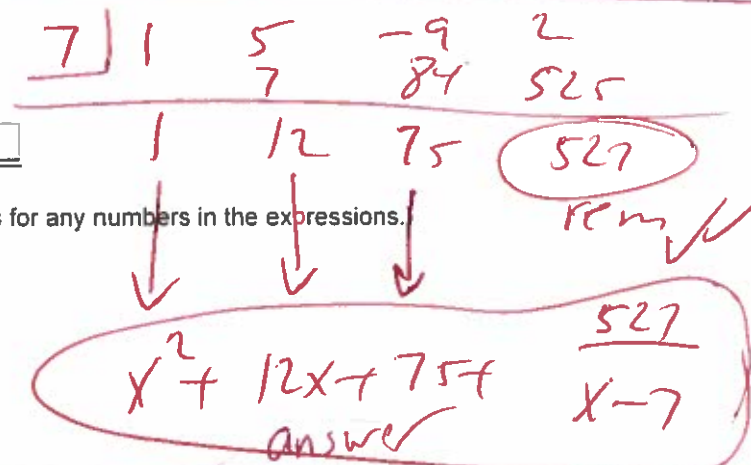 7 1 5 -9 2
7 84 525
1 12 75 527
for any numbers in the expressions.
rem
x² + 12x + 75 + 527/x-7
answer